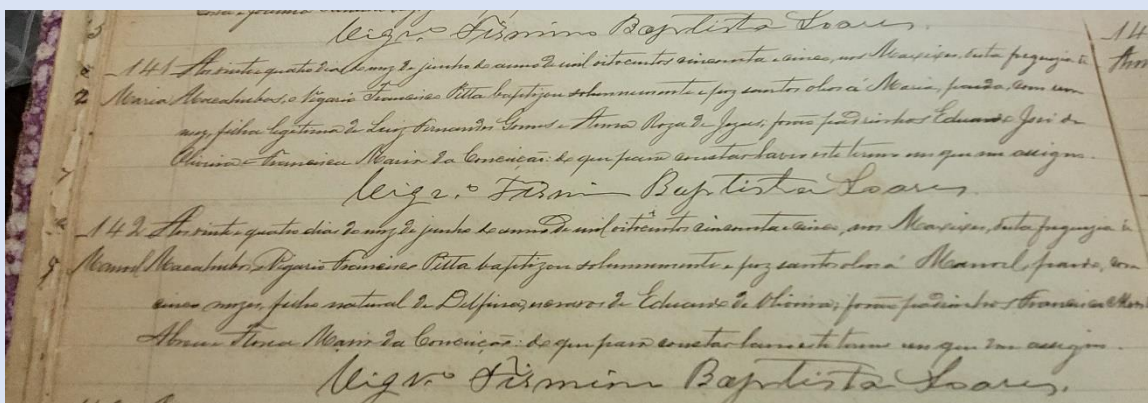 Vigr.º Firmino Baptista Soares.
141 Aos vinte e quatro dia do mez de junho do anno de mil oitocentos cincoenta e cinco, nos Maxixes, desta freguezia de
Maria Macahubas, o Vigario Francisco Pitta baptizou solemnemente e poz santos oleos á Maria, parda, com um
mez, filha legitima de Luiz Fernandes Gomes e Anna Roza de Jezus, forão padrinhos Eduardo José de
Oliveira e Francisca Maria da Conceição: de que para constar lavro este termo em que me assigno.
Vigr.º Firmin Baptista Soares.
142 Aos vinte e quatro dia do mez de junho do anno de mil oitocentos cincoenta e cinco, nos Maxixes, desta freguezia de
Manoel Macahubas, o Vigario Francisco Pitta baptizou solemnemente e poz santos oleos á Manoel, pardo, com
cinco mezes, filho natural de Delfina, escrava de Eduardo de Oliveira; forão padrinhos Francisco
Abreu e Maria da Conceição: de que para constar lavro este termo em que me assigno.
Vigr.º Firmino Baptista Soares.